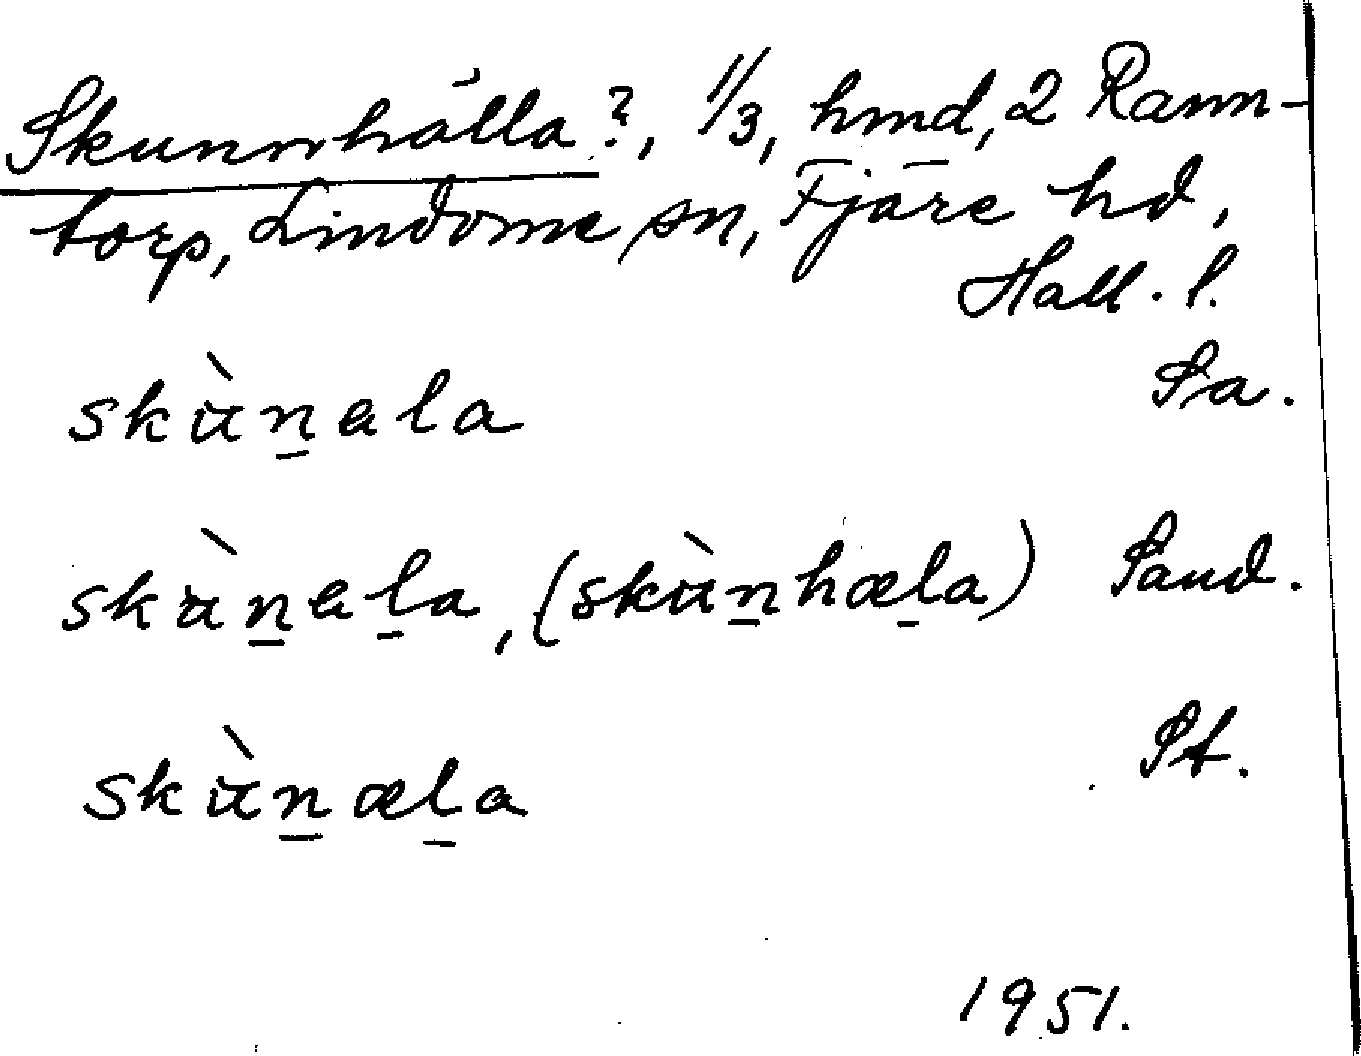 Skunnhälla?, 1/3, hmd, 2 Rann-
torp, Lindome sn, Fjäre hd,
Hall. l.
skùn̲ala Sa.
skùn̲al̲a, (skùn̲hæl̲a) Sand.
skùn̲æl̲a St.
1951.